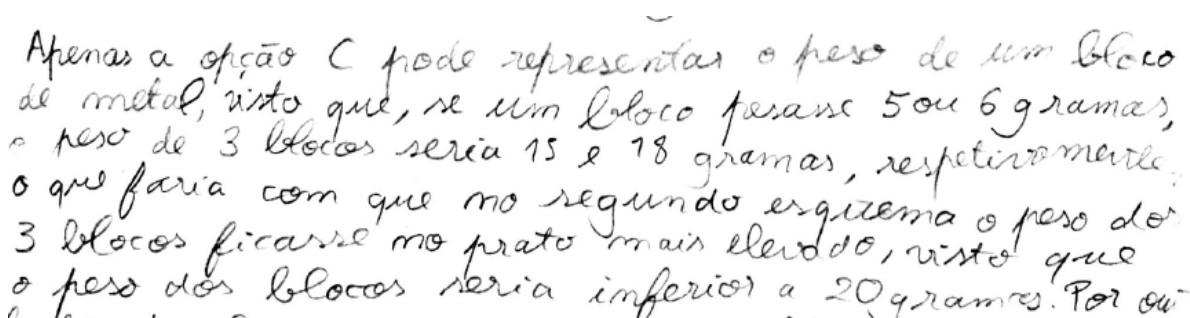 Apenas a opção C pode representar o peso de um bloco
de metal, visto que, se um bloco pesasse 5 ou 6 gramas,
o peso de 3 blocos seria 15 e 18 gramas, respetivamente,
o que faria com que no segundo esquema o peso dos
3 blocos ficasse no prato mais elevado, visto que
o peso dos blocos seria inferior a 20 gramas. Por ou